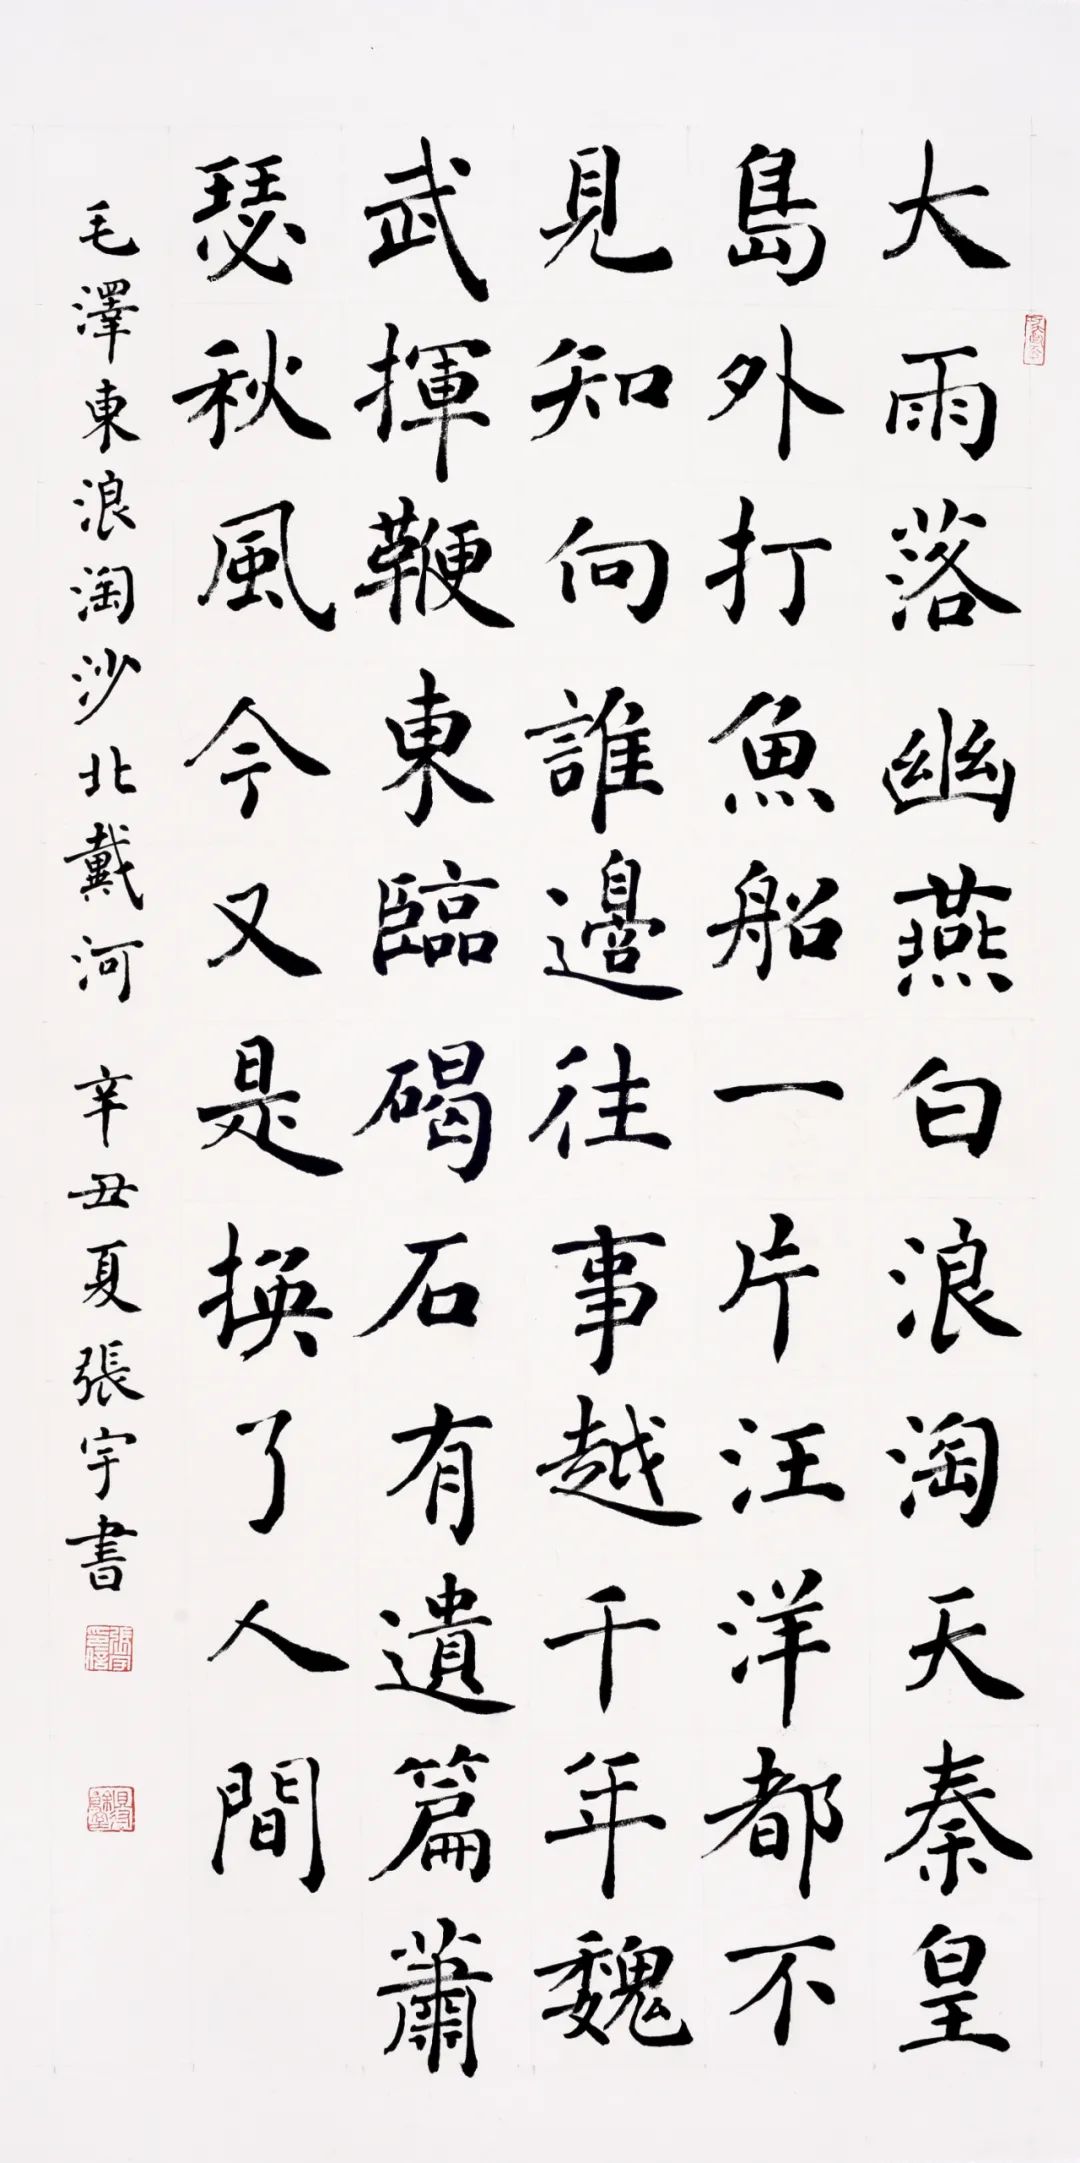 大雨落幽燕白浪淘天秦皇
島外打魚船一片汪洋都不
見知向誰邊往事越千年魏
武揮鞭東臨碣石有遺篇蕭
瑟秋風今又是換了人間
毛澤東浪淘沙北戴河 辛丑夏張宇書